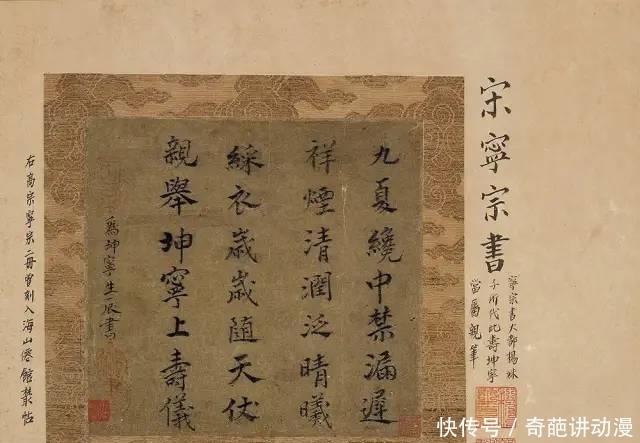 宋寧宗書
寧宗書大都楊妹
子所代此壽坤寧
當屬親筆
九夏纔中禁漏遲
祥煙清潤泛晴曦
綵衣歲歲隨天仗
親舉坤寧上壽儀
為坤寧生辰書
右高宗寧宗二冊曾刻入海山僊館叢帖
快传号/奇葩讲动漫